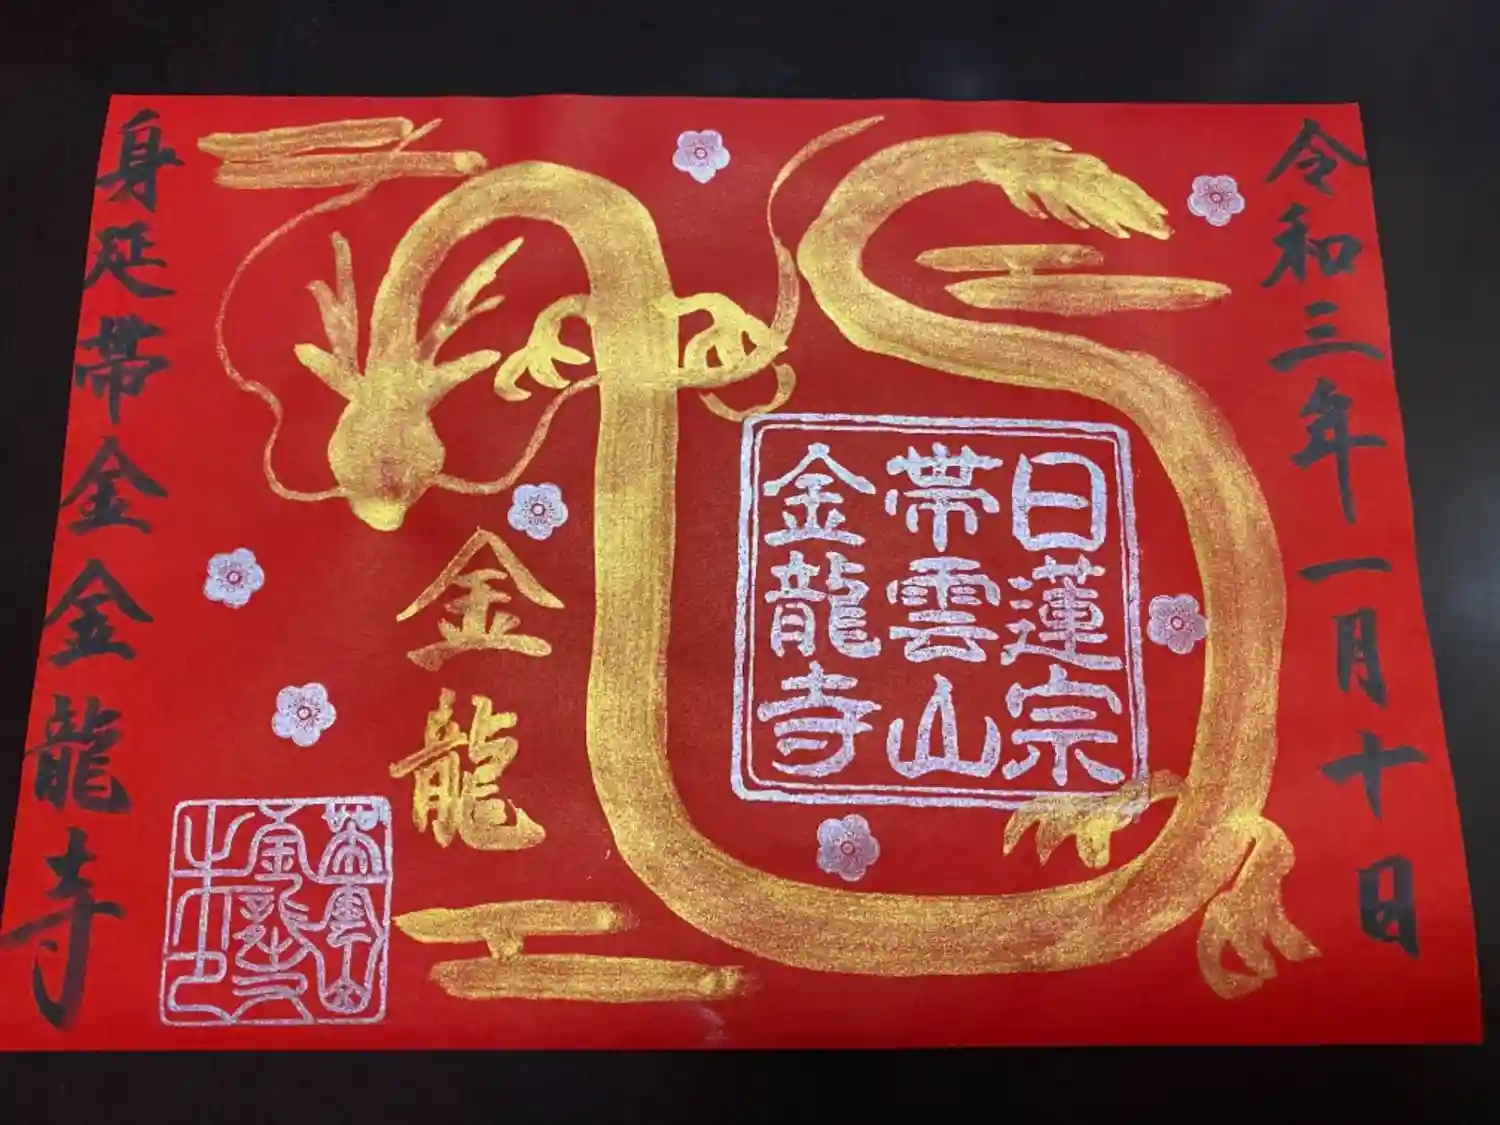 令和三年一月十日
日蓮宗
帯雲山
金龍寺
金龍
身延帯金金龍寺
帯雲山
金龍寺